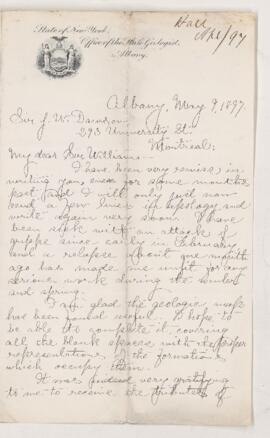 Hall
State of New York.
Office of the State Geologist.
Albany.
Albany, May 9, 1897.
Sir J. W. Dawson
293 University St.
Montreal;
My dear Sir William:-
I have been very remiss, in
writing you, even for some months
past and I will only just now
send a few lines in apology and
write again very soon. I have
been sick with an attack of
grippe since early in February
and a relapse about one month
ago has made me unfit for any
serious work during the winter
and spring.
I am glad the geologic map
has been found useful. I hope to
be able to complete it, covering
all the blank spaces with the proper
representations of the formations
which occupy them.
It was indeed very gratifying
to me to receive the tributes of